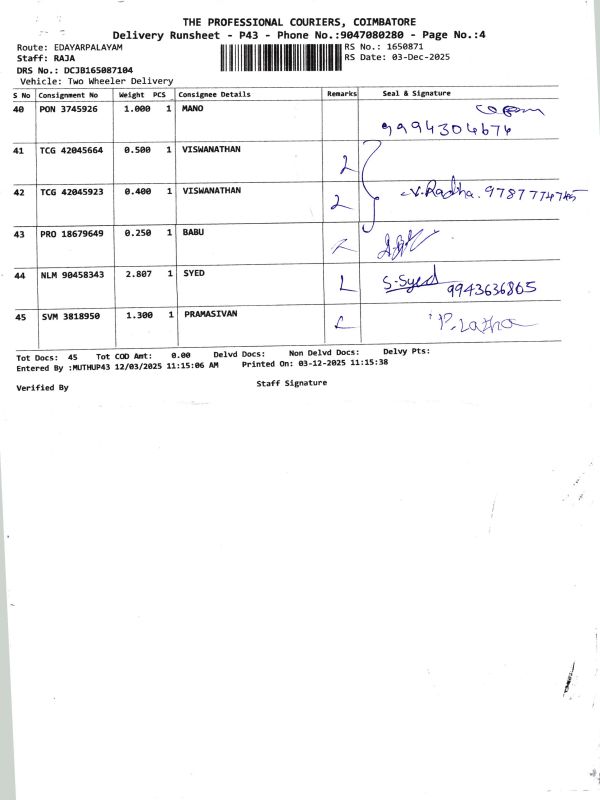 THE PROFESSIONAL COURIERS, COIMBATORE
Delivery Runsheet - P43 - Phone No.:9047080280 - Page No.:4
Route: EDAYARPALAYAM RS No.: 1650871
Staff: RAJA RS Date: 03-Dec-2025
DRS No.: DCJB165087104
Vehicle: Two Wheeler Delivery
S No Consignment No Weight PCS Consignee Details Remarks Seal & Signature
40 PON 3745926 1.000 1 MANO
9994304674
41 TCG 42045664 0.500 1 VISWANATHAN 2
42 TCG 42045923 0.400 1 VISWANATHAN 2 V.Radha. 9787774745
43 PRO 18679649 0.250 1 BABU
44 NLM 90458343 2.807 1 SYED L S.Syed 9943636865
45 SVM 3818950 1.300 1 PRAMASIVAN L P.Latha
Tot Docs: 45 Tot COD Amt: 0.00 Delvd Docs: Non Delvd Docs: Delvy Pts:
Entered By :MUTHUP43 12/03/2025 11:15:06 AM Printed On: 03-12-2025 11:15:38
Verified By Staff Signature